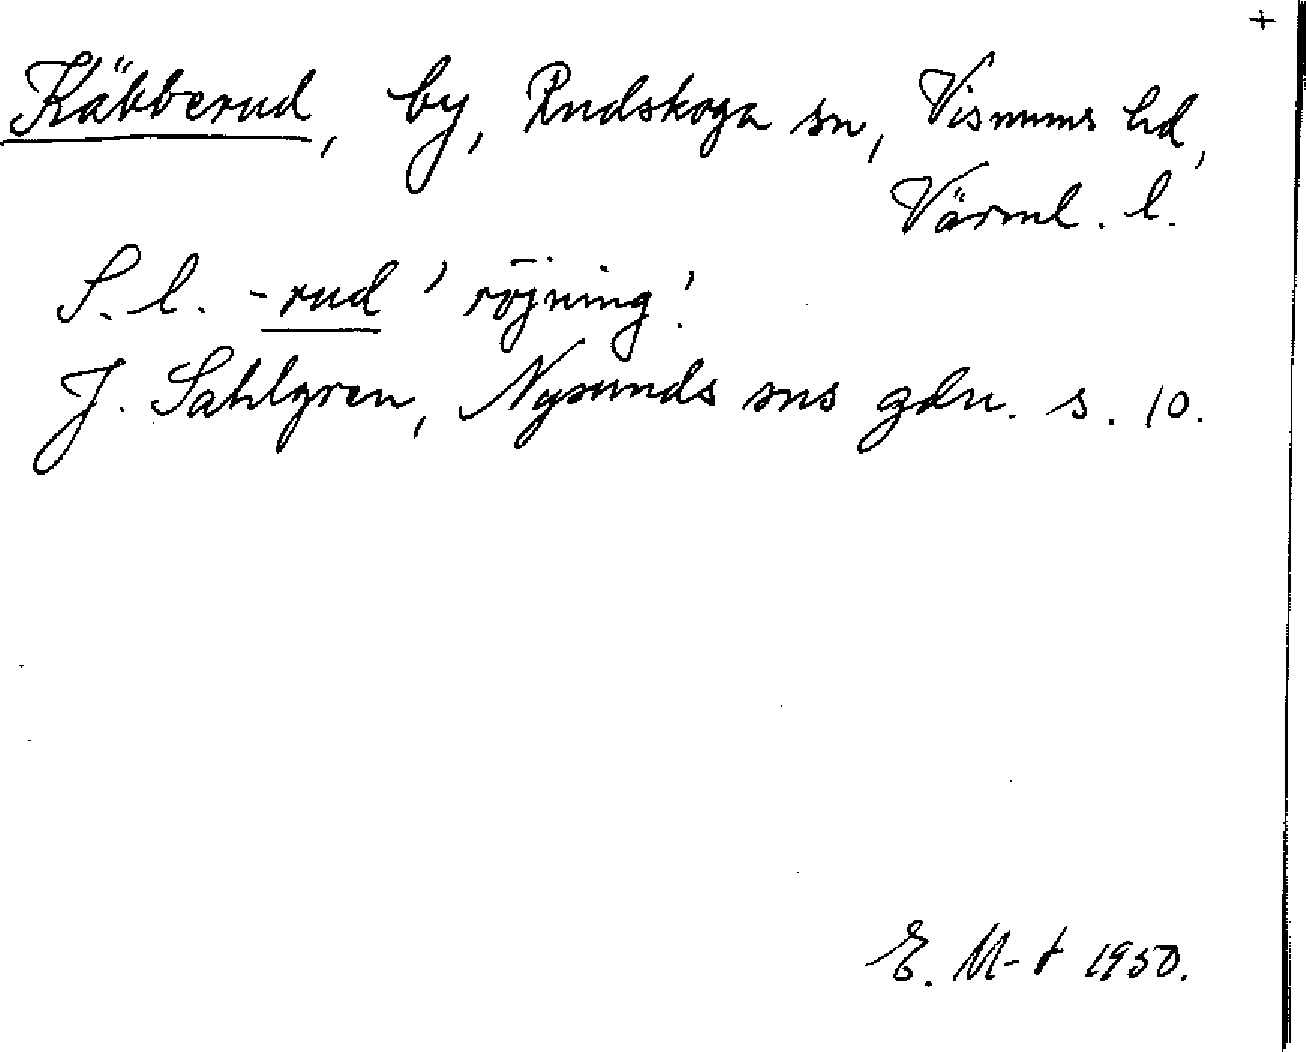 +
Käbberud, by, Rudskoga sn, Visnums hd,
Värml. l.
S. l. -rud 'röjning'.
J. Sahlgren, Nysunds sns gdn. s. 10.
E. M-t 1950.